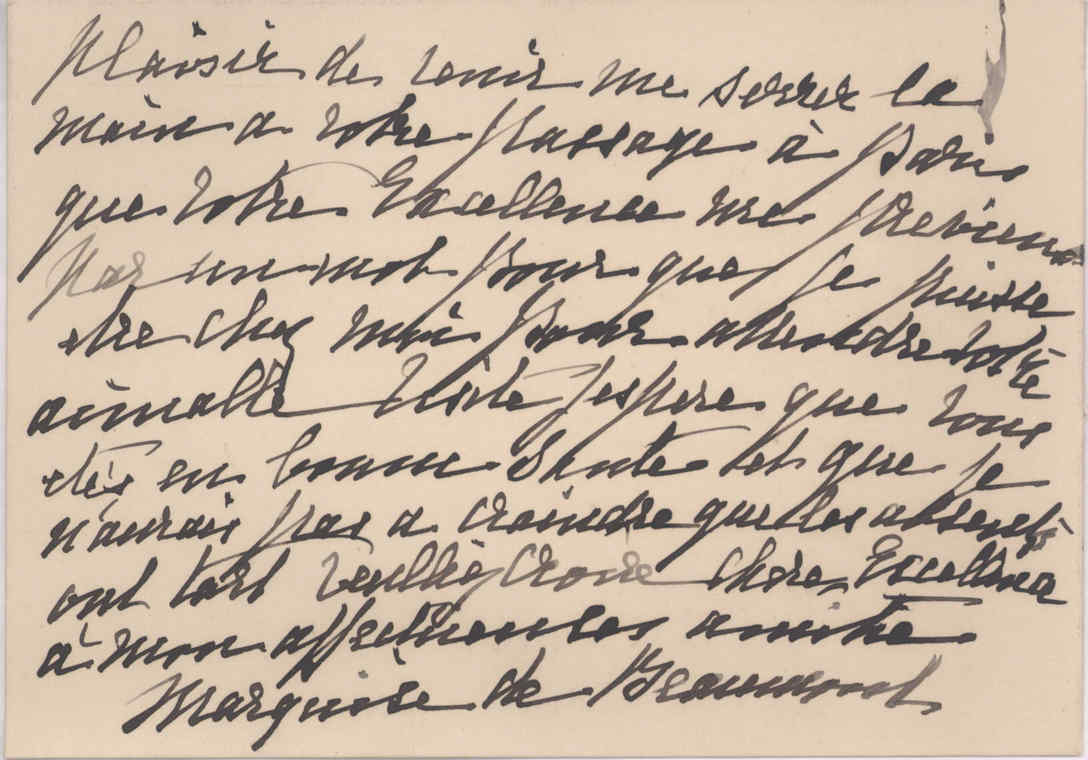 plaisir de venir me serrer la
main a votre passage à Paris
que votre Excellence me previenne
par un mot pour que je puisse
etre chez moi pour attendre votre
aimable visite j'espere que vous
etes en bonne Santé et que je
n'aurais pas a craindre que les absents
ont tort veuillez croire chere Excellence
à mon affectueuse amitie
Marquise de Beaumont